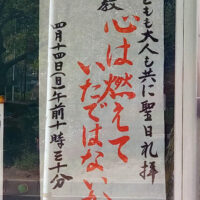 どもも大人も共に聖日礼拝
教
心は燃えて
いたではないか
四月十四日(日)午前十時三十分